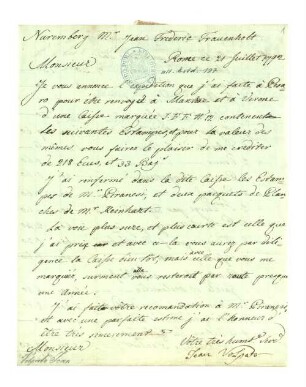 Nuremberg Mr. Jean Frederic Frauenholt
Monsieur Rome ce 21 Juillet 1792
Je vous annonce l'expedition que j'ai faite à
pour être renvoyé à et à Verone
d'une Caisse marquée N. 12 contenentan
les suivantes Estampes, et pour la valeur des
mêmes vous faires le plaisir de me créditer
de 218 Ecus, et 33 Baj.
J'ai renfermé dans la dite Caisse les Estam
pes de Mr. Piranesi, et deux pacquets de Plan
ches de Mr. Reinhart.
La voie plus sure, et plus courte est celle que
j'ai pris et avec la vous aurez par dili
gence la Caisse bientôt; mais avec celle que vous me
marquez, surement elle resteroit par route presque
une Année.
J'ai faite votre recomandation à Mr.
et avec une parfaite estime j'ai l'honneur
d'être très sincerement
Monsieur Votre très humble Servr.
Jean Volpato